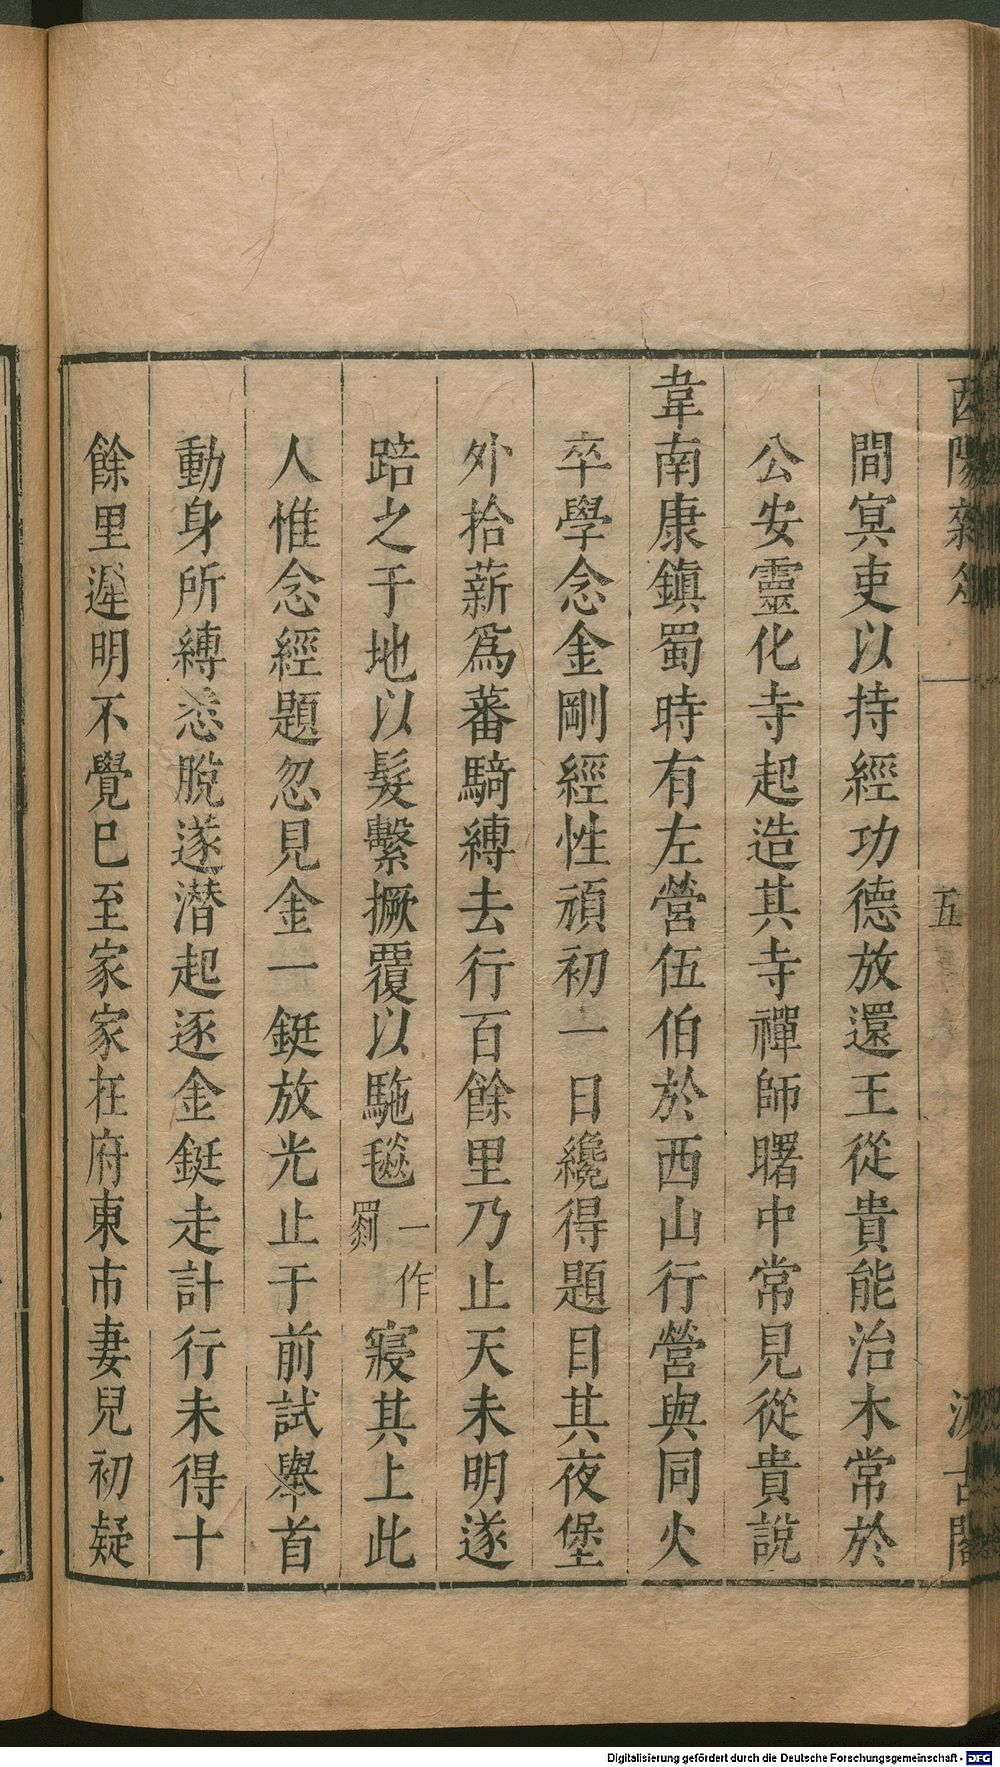 酉陽雜俎
五
汲古閣
間冥吏以持經功德放還王從貴能治木常於
公安靈化寺起造其寺禪師曙中常見從貴說
韋南康鎮蜀時有左營伍伯於西山行營與同火
卒學念金剛經性頑初一日纔得題目其夜堡
外拾薪爲蕃騎縛去行百餘里乃止天未明遂
踣之于地以髮繫橛覆以駞毯一作罽寢其上此
人惟念經題忽見金一鋌放光止于前試舉首
動身所縛悉脫遂潛起逐金鋌走計行未得十
餘里遲明不覺已至家家在府東市妻兒初疑
Digitalisierung gefördert durch die Deutsche Forschungsgemeinschaft - DFG